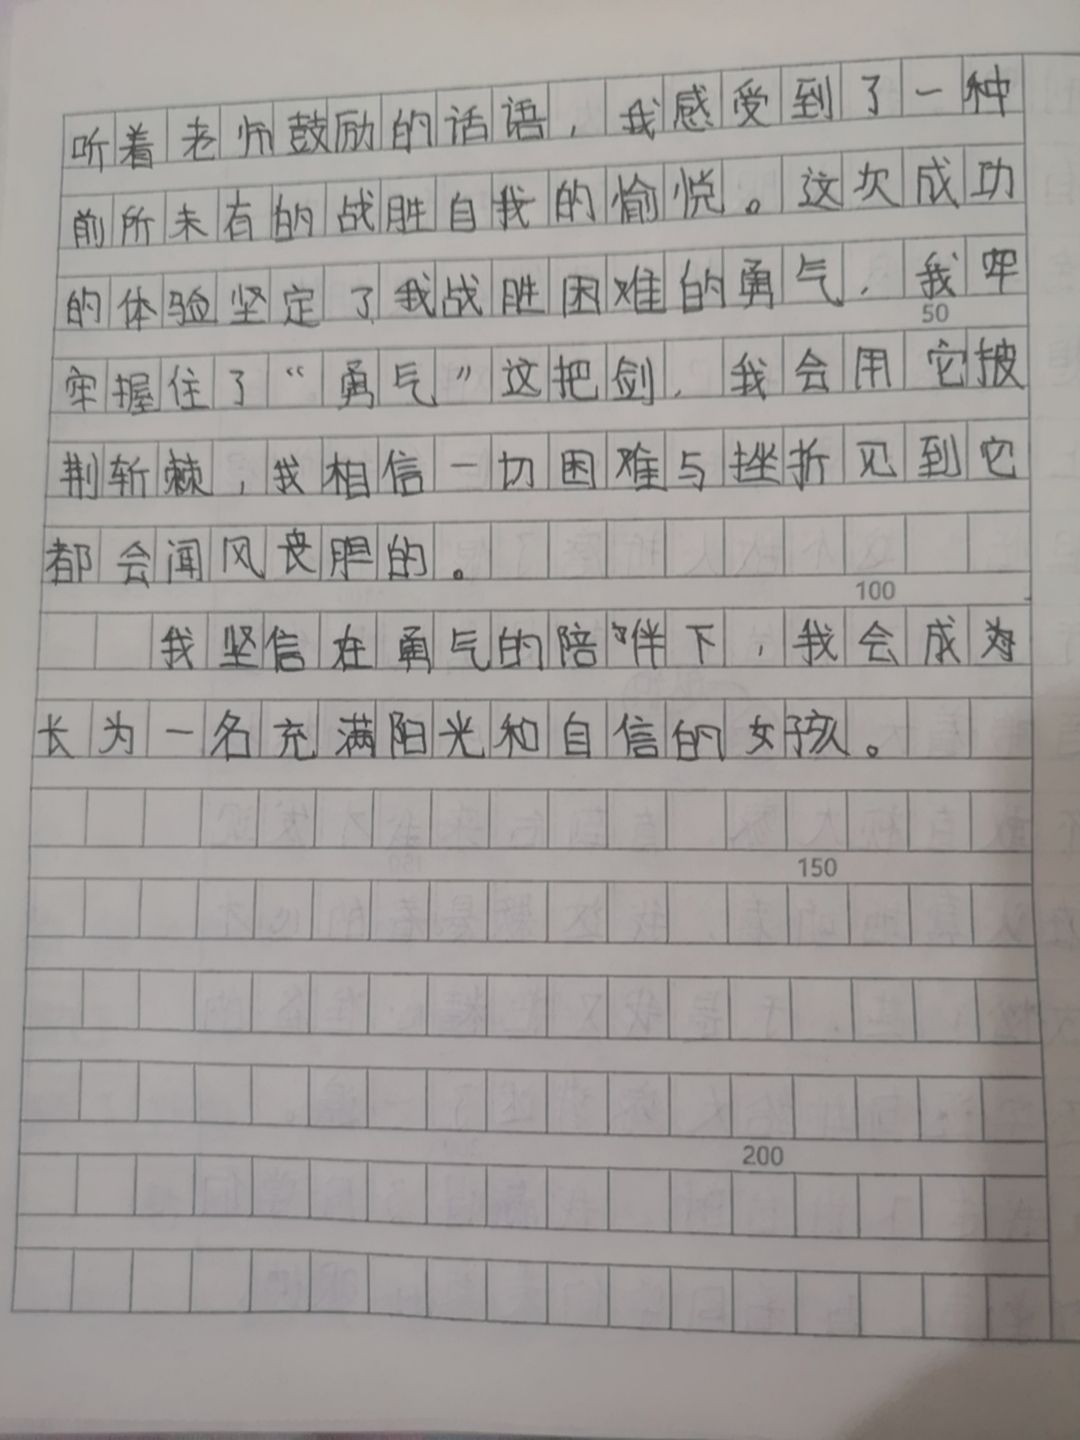 听着老师鼓励的话语，我感受到了一种
前所未有的战胜自我的愉悦。这次成功
的体验坚定了我战胜困难的勇气，我牢
50
牢握住了“勇气”这把剑，我会用它披
荆斩棘，我相信一切困难与挫折见到它
都会闻风丧胆的。
100
我坚信在勇气的陪伴下，我会成为
长为一名充满阳光和自信的女孩。
150
200